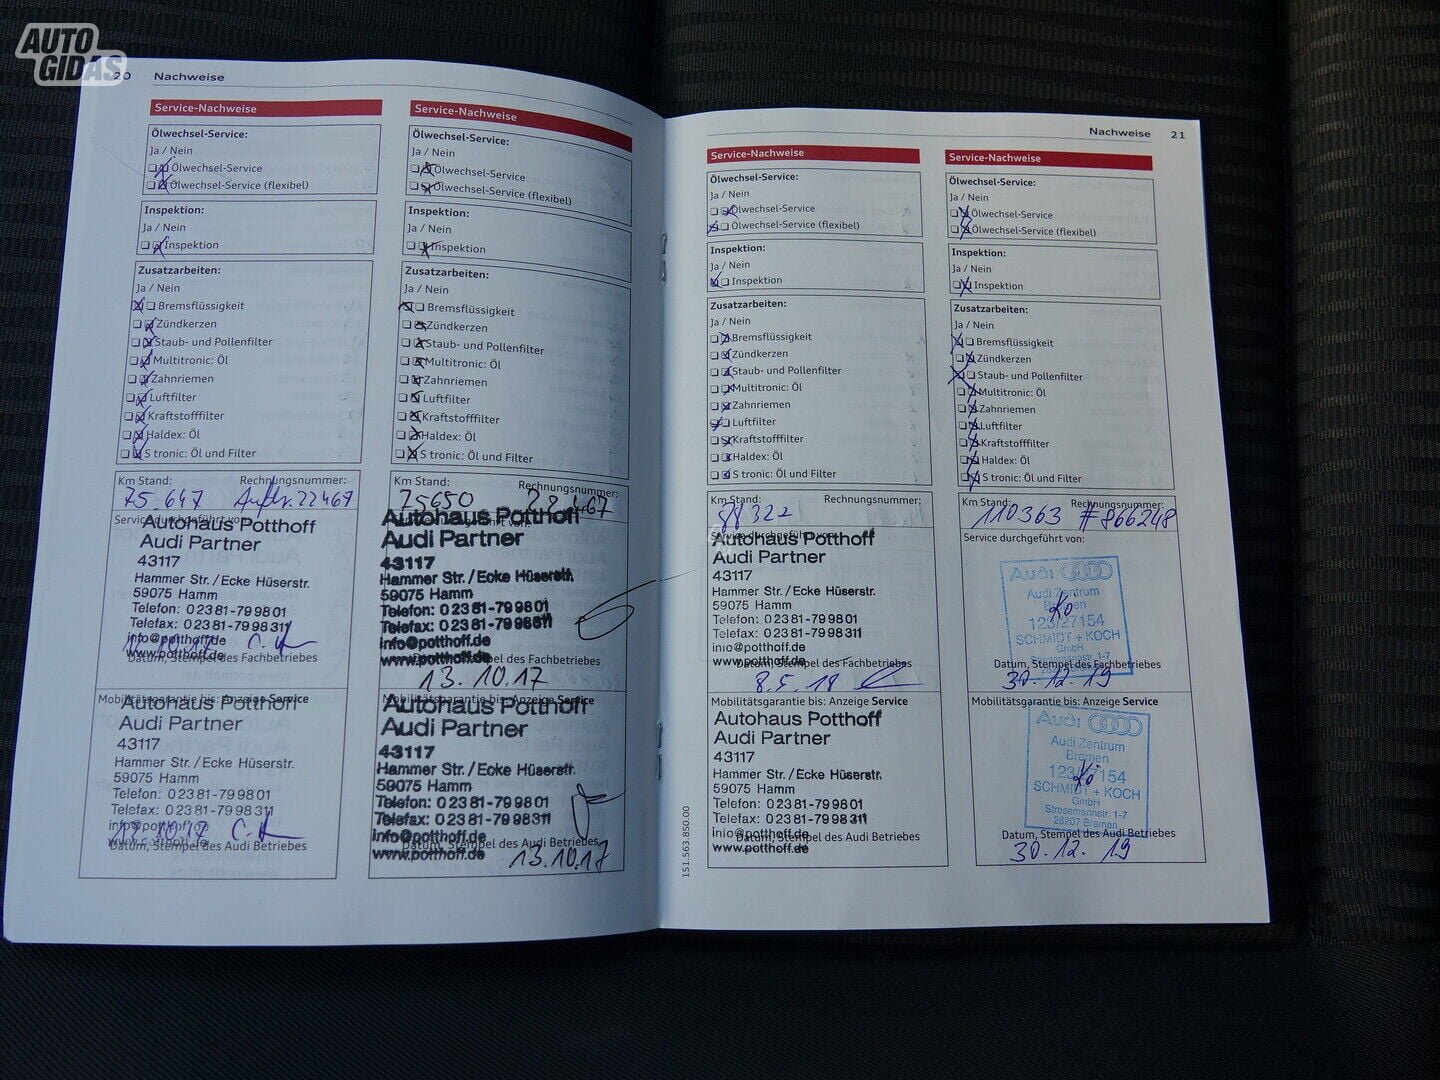 AUTO
GIDAS
20 Nachweise
Service-Nachweise
Ölwechsel-Service:
Ja / Nein
Ölwechsel-Service
Ölwechsel-Service (flexibel)
Inspektion:
Ja / Nein
Inspektion
Zusatzarbeiten:
Ja / Nein
Bremsflüssigkeit
Zündkerzen
Staub- und Pollenfilter
Multitronic: Öl
Zahnriemen
Luftfilter
Kraftstofffilter
Haldex: Öl
S tronic: Öl und Filter
Km Stand: Rechnungsnummer:
75.647 22467
Service durchgeführt von:
Autohaus Potthoff
Audi Partner
43117
Hammer Str./Ecke Hüserstr.
59075 Hamm
Telefon: 02381-799801
Telefax: 02381-7998311
info@potthoff.de
www.potthoff.de
Datum, Stempel des Fachbetriebes
Mobilitätsgarantie bis: Anzeige Service
Autohaus Potthoff
Audi Partner
43117
Hammer Str./Ecke Hüserstr.
59075 Hamm
Telefon: 02381-799801
Telefax: 02381-7998311
info@potthoff.de
13.10.17
Datum, Stempel des Audi Betriebes
Service-Nachweise
Ölwechsel-Service:
Ja / Nein
Ölwechsel-Service
Ölwechsel-Service (flexibel)
Inspektion:
Ja / Nein
Inspektion
Zusatzarbeiten:
Ja / Nein
Bremsflüssigkeit
Zündkerzen
Staub- und Pollenfilter
Multitronic: Öl
Zahnriemen
Luftfilter
Kraftstofffilter
Haldex: Öl
S tronic: Öl und Filter
Km Stand: Rechnungsnummer:
75650
Autohaus Potthoff
Audi Partner
43117
Hammer Str./Ecke Hüserstr.
59075 Hamm
Telefon: 02381-799801
Telefax: 02381-7998311
info@potthoff.de
www.potthoff.de
Datum, Stempel des Fachbetriebes
13.10.17
Mobilitätsgarantie bis: Anzeige Service
Autohaus Potthoff
Audi Partner
43117
Hammer Str./Ecke Hüserstr.
59075 Hamm
Telefon: 02381-799801
Telefax: 02381-7998311
info@potthoff.de
Datum, Stempel des Audi Betriebes
www.potthoff.de
13.10.17
Nachweise 21
Service-Nachweise
Ölwechsel-Service:
Ja / Nein
Ölwechsel-Service
Ölwechsel-Service (flexibel)
Inspektion:
Ja / Nein
Inspektion
Zusatzarbeiten:
Ja / Nein
Bremsflüssigkeit
Zündkerzen
Staub- und Pollenfilter
Multitronic: Öl
Zahnriemen
Luftfilter
Kraftstofffilter
Haldex: Öl
S tronic: Öl und Filter
Km Stand: Rechnungsnummer:
88322
Service durchgeführt von:
Autohaus Potthoff
Audi Partner
43117
Hammer Str./Ecke Hüserstr.
59075 Hamm
Telefon: 02381-799801
Telefax: 02381-7998311
info@potthoff.de
www.potthoff.de
Datum, Stempel des Fachbetriebes
8.5.18
Mobilitätsgarantie bis: Anzeige Service
Autohaus Potthoff
Audi Partner
43117
Hammer Str./Ecke Hüserstr.
59075 Hamm
Telefon: 02381-799801
Telefax: 02381-7998311
info@potthoff.de
Datum, Stempel des Audi Betriebes
www.potthoff.de
151.563.850.00
Service-Nachweise
Ölwechsel-Service:
Ja / Nein
Ölwechsel-Service
Ölwechsel-Service (flexibel)
Inspektion:
Ja / Nein
Inspektion
Zusatzarbeiten:
Ja / Nein
Bremsflüssigkeit
Zündkerzen
Staub- und Pollenfilter
Multitronic: Öl
Zahnriemen
Luftfilter
Kraftstofffilter
Haldex: Öl
S tronic: Öl und Filter
Km Stand: Rechnungsnummer:
110363 #866248
Service durchgeführt von:
Audi
Audi Zentrum
Bremen
123/27154
SCHMIDT + KOCH
GmbH
Stresemannstr. 1-7
Datum, Stempel des Fachbetriebes
30.12.19
Mobilitätsgarantie bis: Anzeige Service
Audi
Audi Zentrum
Bremen
123/27154
SCHMIDT + KOCH
GmbH
Stresemannstr. 1-7
28207 Bremen
Datum, Stempel des Audi Betriebes
30.12.19